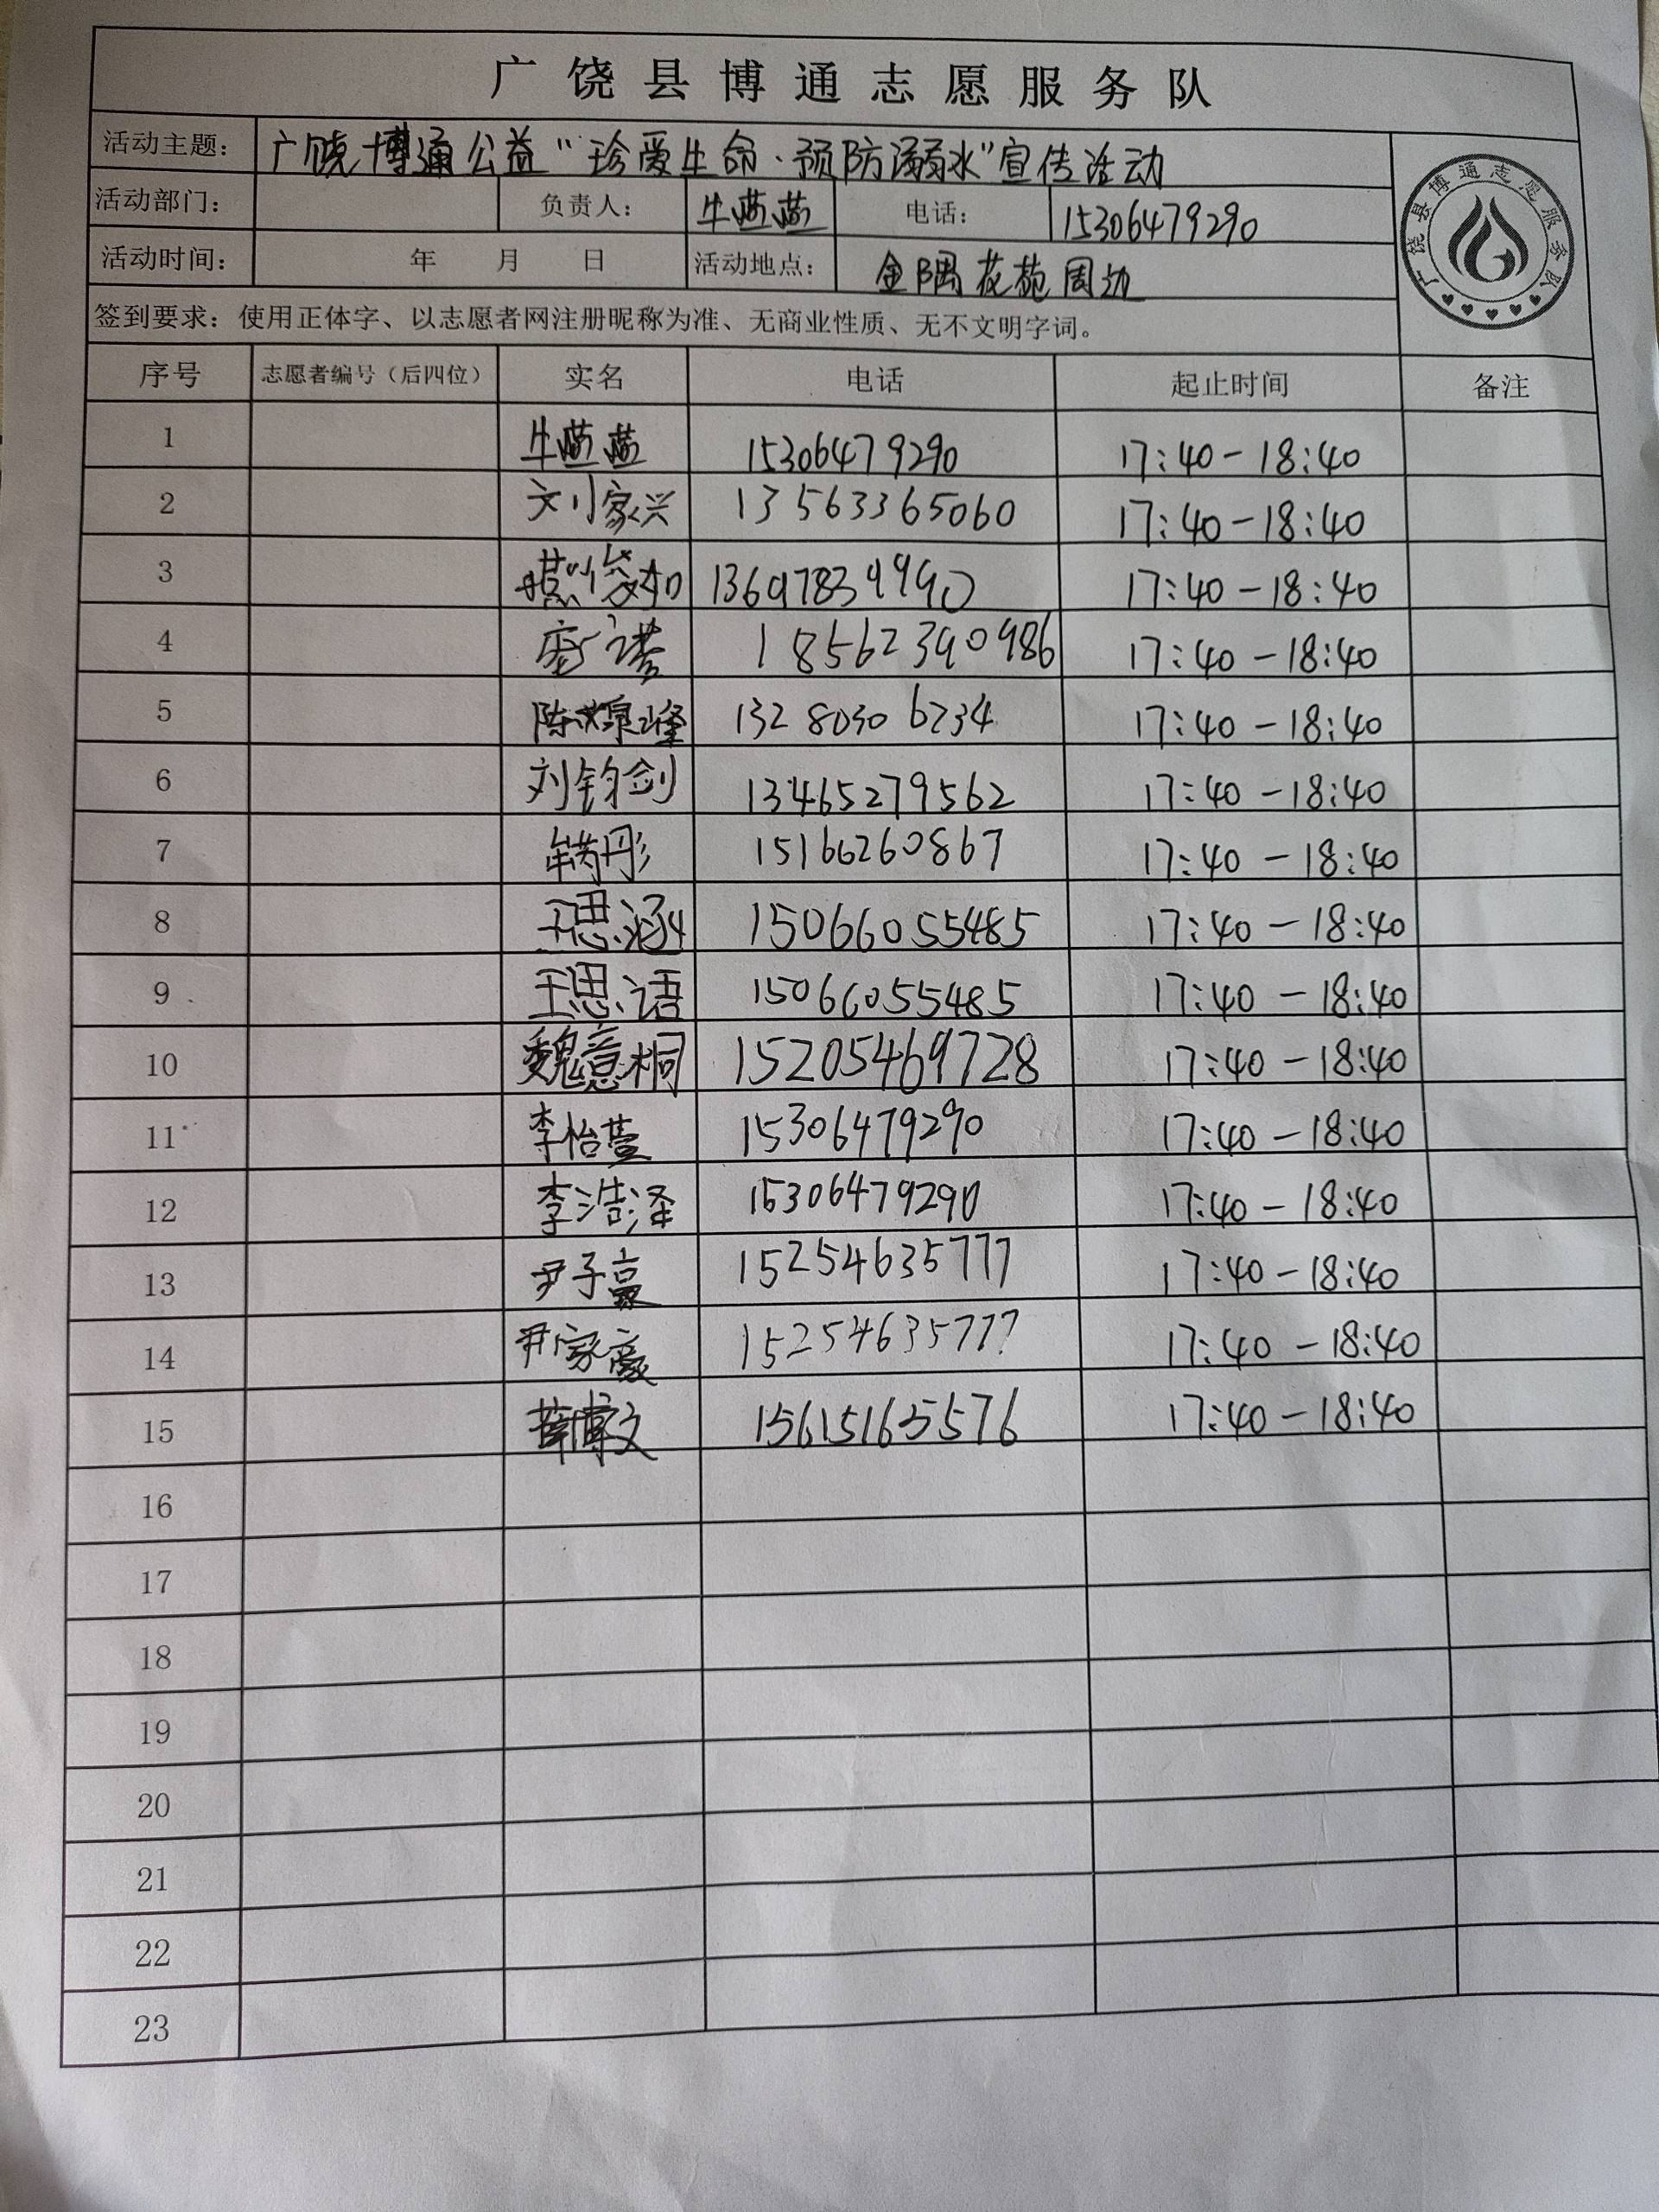 广饶县博通志愿服务队
活动主题： 广饶博通公益“珍爱生命·预防溺水”宣传活动
活动部门： 负责人： 牛蓝蓝 电话： 15306479290
活动时间： 年 月 日 活动地点： 金隅花苑周边
广饶县博通志愿服务队
签到要求：使用正体字、以志愿者网注册昵称为准、无商业性质、无不文明字词。
序号 志愿者编号（后四位） 实名 电话 起止时间 备注
1 牛蓝蓝 15306479290 17:40-18:40
2 刘家兴 13563365060 17:40-18:40
3 13697839990 17:40-18:40
4 18562390986 17:40-18:40
5 陈 峰 13280306234 17:40-18:40
6 刘钧剑 13465279562 17:40-18:40
7 15166260867 17:40-18:40
8 王思涵 15066055485 17:40-18:40
9 王思语 15066055485 17:40-18:40
10 魏意桐 15205469728 17:40-18:40
11 李怡萱 15306479290 17:40-18:40
12 李浩泽 15306479290 17:40-18:40
13 尹子豪 15254635777 17:40-18:40
14 尹家豪 15254635777 17:40-18:40
15 薛博文 15615165576 17:40-18:40
16
17
18
19
20
21
22
23